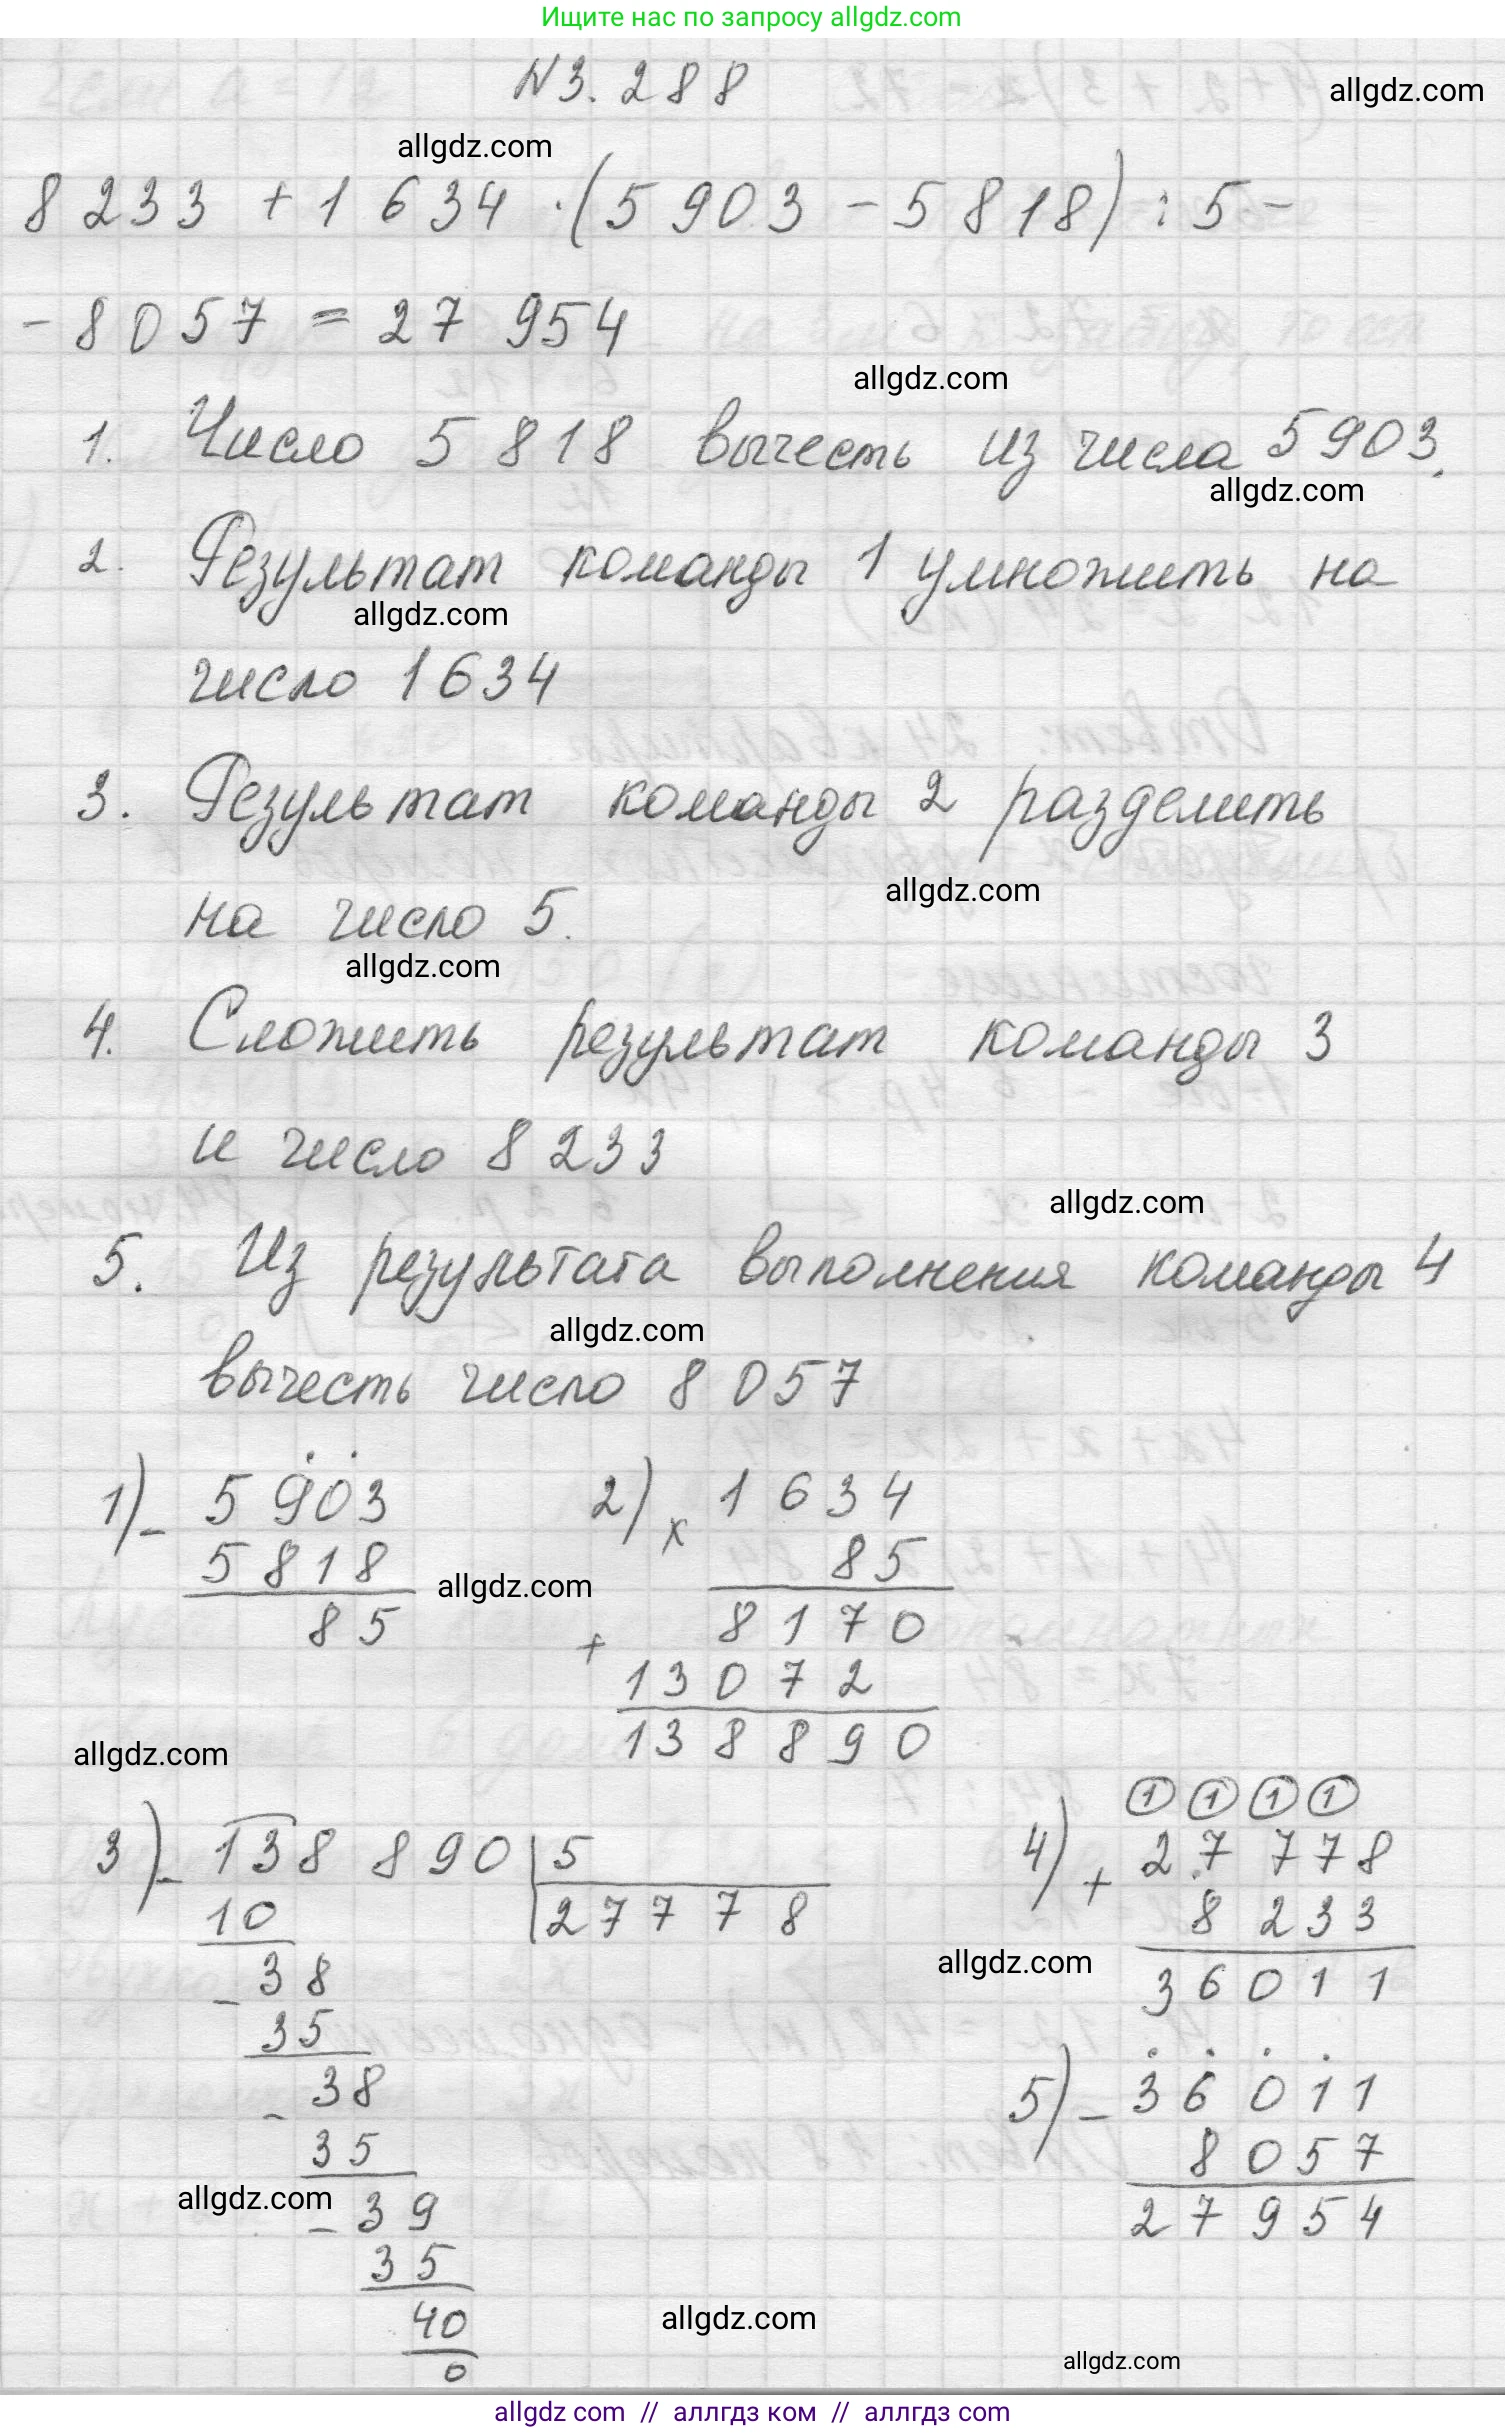 Ищите нас по запросу allgdz.com
№3.288
allgdz.com
allgdz.com
8233 + 1634 · (5903 - 5818) : 5 -
- 8057 = 27 954
allgdz.com
1. Число 5818 вычесть из числа 5903.
allgdz.com
2. Результат команды 1 умножить на
allgdz.com
число 1634
3. Результат команды 2 разделить
allgdz.com
на число 5.
allgdz.com
4. Сложить результат команды 3
и число 8233
allgdz.com
5. Из результата выполнения команды 4
allgdz.com
вычесть число 8057
1) - 5903
5818
85
allgdz.com
2) x 1634
85
8170
+
13072
138890
allgdz.com
3) - 138 890 | 5
10 27778
- 38
35
- 38
35
allgdz.com
- 39
35
40
0
1 1 1 1
4) + 27 778
8 233
36011
allgdz.com
5) - 36011
8057
27954
allgdz.com
allgdz.com
allgdz.com // аллгдз ком // аллгдз com